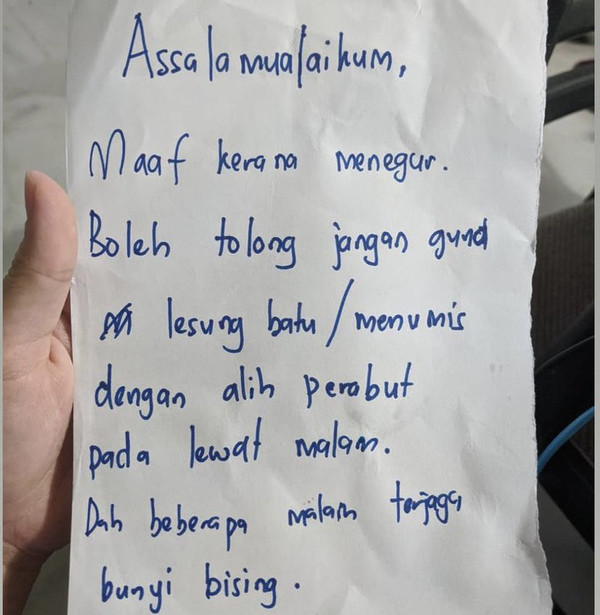 Assalamualaikum,
Maaf kerana menegur.
Boleh tolong jangan guna
lesung batu / menumis
dengan alih perabut
pada lewat malam.
Dah beberapa malam terjaga
bunyi bising.